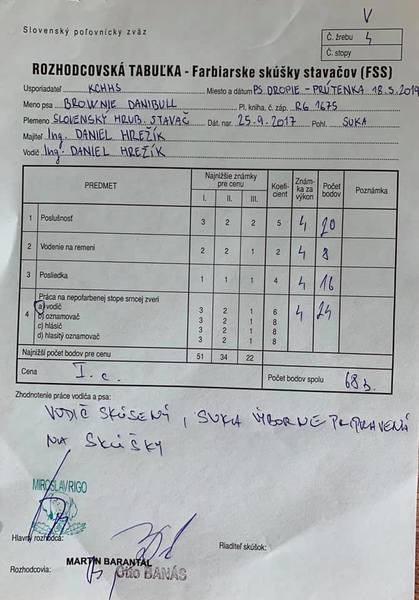 V
Slovenský poľovnícky zväz
Č. žrebu 4
Č. stopy
ROZHODCOVSKÁ TABUĽKA - Farbiarske skúšky stavačov (FSS)
Usporiadateľ KCHHS Miesto a dátum PS DROPIE - PRÚTENKA 18.5.2019
Meno psa BROWNIE DANIBULL Pl. kniha, č. záp. RG 1675
Plemeno SLOVENSKÝ HRUB. STAVAČ Dát. nar. 25.9.2017 Pohl. SUKA
Majiteľ Ing. DANIEL HREŽÍK
Vodič Ing. DANIEL HREŽÍK
PREDMET Najnižšie známky pre cenu I. II. III. Koeficient Známka za výkon Počet bodov Poznámka
1 Poslušnosť 3 2 2 5 4 20
2 Vodenie na remeni 2 2 1 2 4 8
3 Posliedka 1 1 1 4 4 16
4 Práca na nepofarbenej stope srncej zveri
a) vodič 3 2 1 6 4 24
b) oznamovač 3 2 1 8
c) hlásič 3 2 1 8
d) hlasitý oznamovač 3 2 1 8
Najnižší počet bodov pre cenu 51 34 22
Cena I. c. Počet bodov spolu 68 b.
Zhodnotenie práce vodiča a psa:
VODIČ SKÚSENÝ, SUKA VÝBORNE PRIPRAVENÁ
NA SKÚŠKY
MIROSLAV RIGO
Hlavný rozhodca: Riaditeľ skúšok:
MARTIN BARANTAL
Rozhodcovia: Otto BANÁS